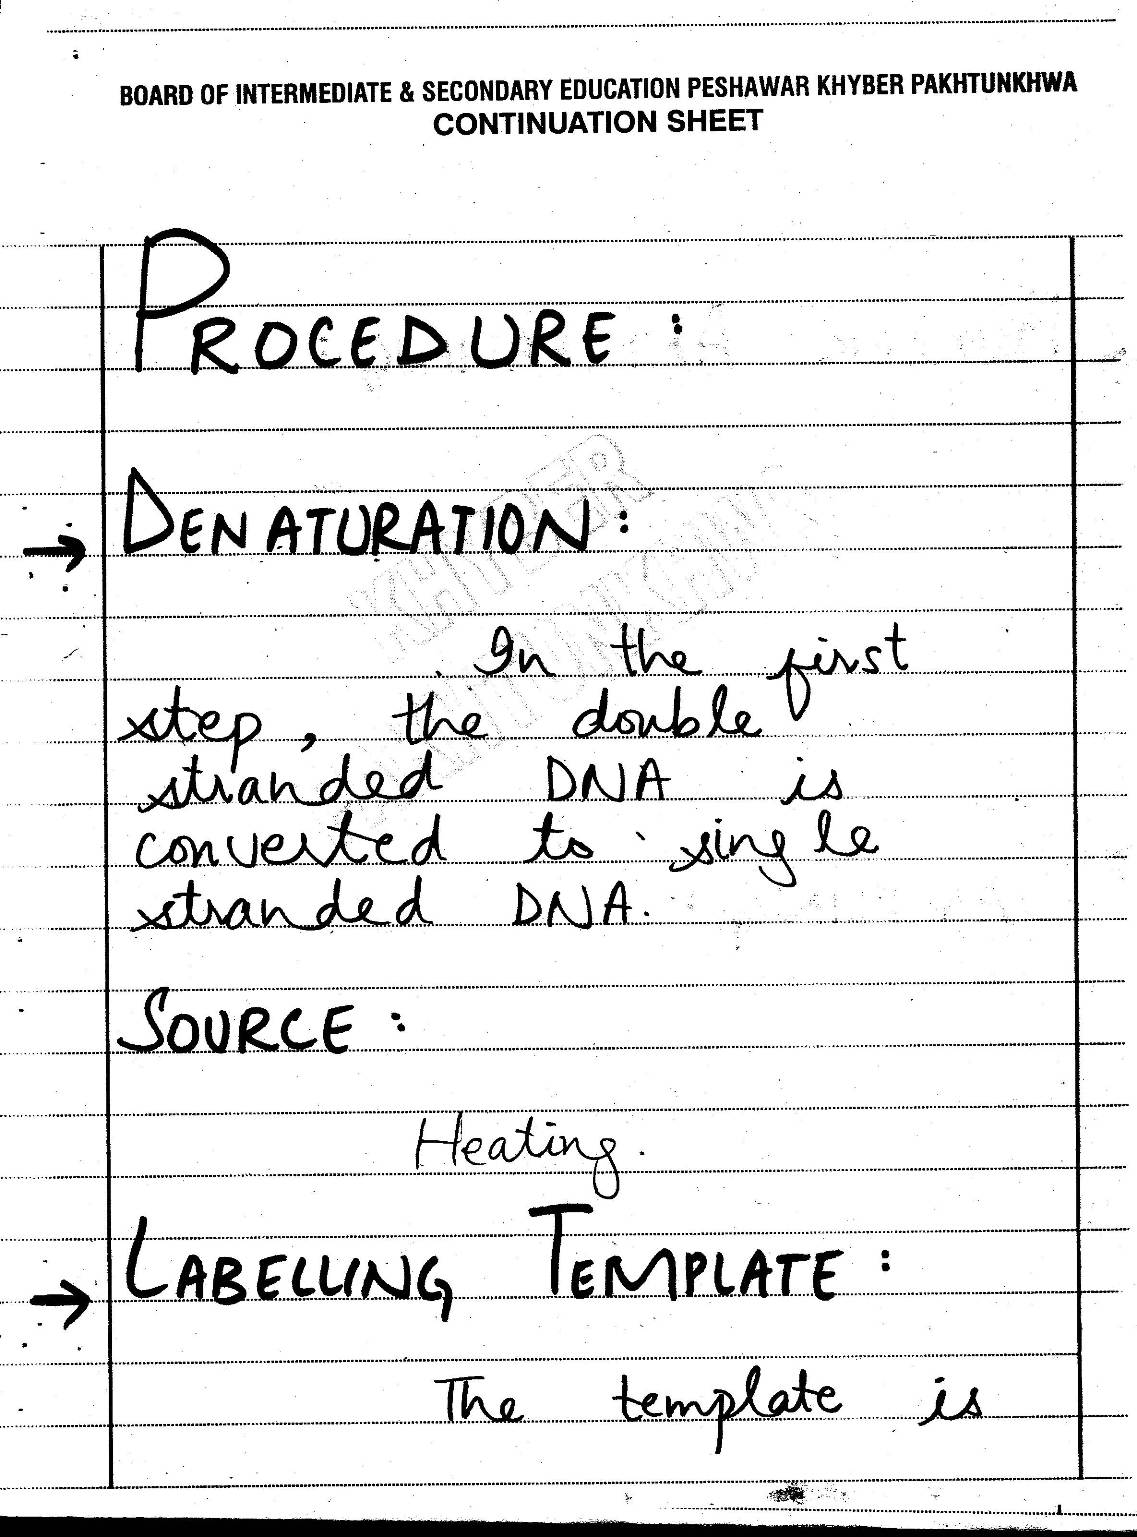 BOARD OF INTERMEDIATE & SECONDARY EDUCATION PESHAWAR KHYBER PAKHTUNKHWA
CONTINUATION SHEET
PROCEDURE :
→ DENATURATION :
In the first
step, the double
stranded DNA is
converted to single
stranded DNA.
SOURCE :
Heating.
→ LABELLING TEMPLATE :
The template is